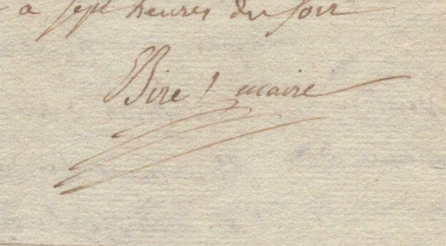 à sept heures du soir
Biret maire